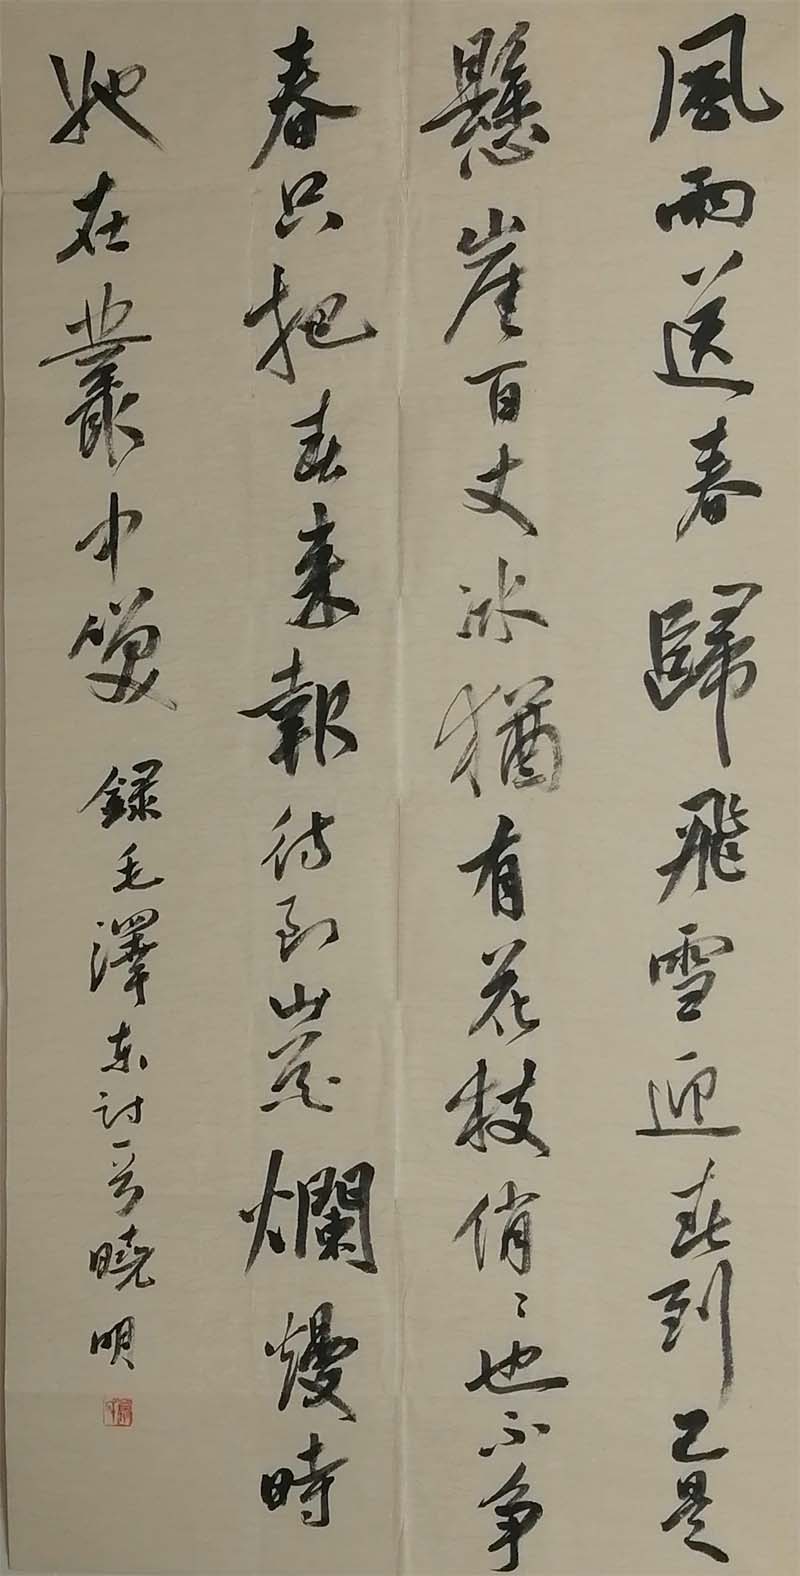 風雨送春歸飛雪迎春到已是
懸崖百丈冰猶有花枝俏俏〻也不争
春只把春來報待到山花爛熳時
她在叢中笑
錄毛澤东詩一首曉明